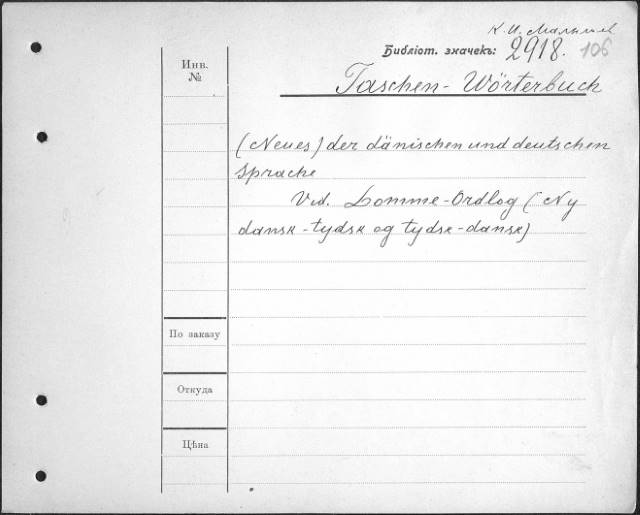 К. И. Малышев
Библіот. значекъ: 2918. 106
Инв.
№
Taschen-Wörterbuch
(Neues) der dänischen und deutschen
Sprache
Vid. Lomme-Ordlog (Ny
dansk-tydsk og tydsk-dansk)
По заказу
Откуда
Цѣна